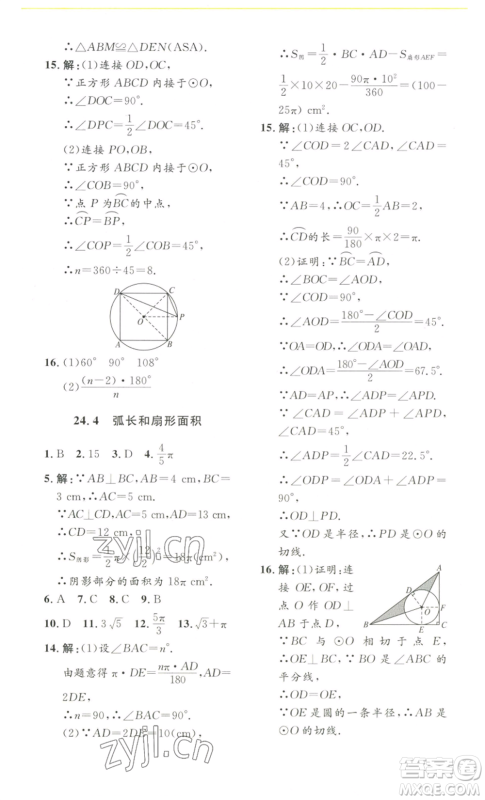 ∴△ABM≌△DEN(ASA).
15.解:(1)连接 OD,OC.
∵正方形 ABCD 内接于⊙O,
∴∠DOC=90°.
∴∠DPC=1/2∠DOC=45°.
(2)连接 PO,OB,
∵正方形 ABCD 内接于⊙O,
∴∠COB=90°,
∵点 P 为BC的中点,
∴CP=BP,
∴∠COP=1/2∠COB=45°,
∴n=360÷45=8.
D C O P A B
16.(1)60° 90° 108°
(2)(n-2)·180°/n
24.4 弧长和扇形面积
1.B 2.15 3.D 4.4/5π
5.解:∵AD⊥BC,AC=5 cm,BC=3 cm,
∵AC⊥CD,AD=13 cm,
∴CD=12 cm,
∴S圆形=1/2·π·(12/2)²=18π(cm²),
∴阴影部分的面积为 18π cm².
6.A 7.C 8.C 9.B
10.D 11.3√3 12.5π/3 13.√3+π
14.解:(1)设∠BAC=n°.
由题意得 π·DE=nπ·AD/180,AD=
2DE,
∴n=90,∴∠BAC=90°.
(2)∵AD=2DE=10(cm),
∴S阴=1/2·BC·AD-S扇形AEF=
1/2×10×20-90π·10²/360=(100-
25π) cm².
15.解:(1)连接 OC,OD.
∵∠COD=2∠CAD,∠CAD=
45°,
∴∠COD=90°.
∵AB=4,∴OC=1/2AB=2,
∴CD的长=90/180×π×2=π.
(2)证明:∵BC=AD,
∴∠BOC=∠AOD,
∴∠AOD=(180°-∠COD)/2=45°.
∵OA=OD,∴∠ODA=∠OAD,
∴∠ODA=(180°-∠AOD)/2=67.5°.
∵AD=AP,∴∠ADP=∠APD.
∵∠CAD=∠ADP+∠APD=
45°,
∴∠ADP=1/2∠CAD=22.5°.
∴∠ODP=∠ODA+∠ADP=
90°,
∴OD⊥PD.
又∵OD是半径,∴PD是⊙O的
切线.
16.解:(1)证明:连
接 OE,OF,过
点 O 作 OD⊥
AB 于点 D,
∵BC 与⊙O
相切于点 E,
∴OE⊥BC.
∵BO 是∠ABC 的
平分线,
∴OD=OE.
∴OD=圆的一条半径,
∴AB 是⊙O的切线.
A D O F B E C
zyjl.cn
zyjl.cn
答案圈
MXQE.COM